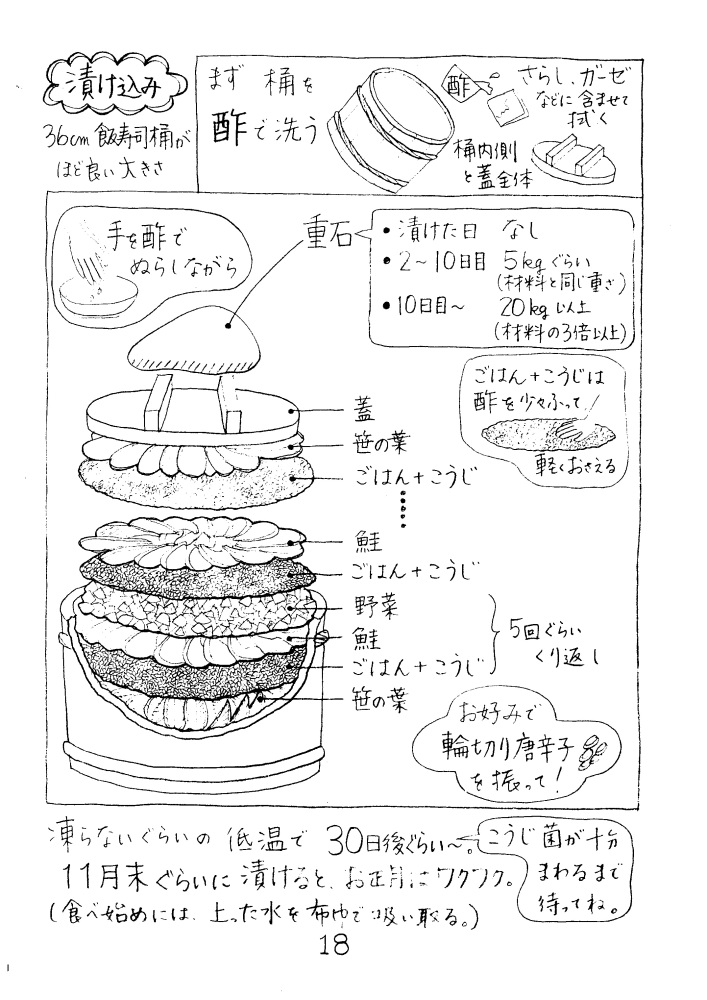 漬け込み
36cm 飯寿司桶が
ほど良い大きさ
まず 桶を
酢で洗う
酢
さらし、ガーゼ
などに含ませて
拭く
桶内側
と蓋全体
手を酢で
ぬらしながら
重石
• 漬けた日 なし
• 2～10日目 5kgぐらい
(材料と同じ重さ)
• 10日目～ 20kg以上
(材料の3倍以上)
ごはん+こうじは
酢を少々ふって!
軽くおさえる
蓋
笹の葉
ごはん+こうじ
鮭
ごはん+こうじ
野菜
鮭
ごはん+こうじ
笹の葉
5回ぐらい
くり返し
お好みで
輪切り唐辛子
を振って!
凍らないぐらいの 低温で 30日後ぐらい～。
11月末ぐらいに漬けると、お正月はワクワク。
(食べ始めには、上った水を布巾で吸い取る。)
こうじ菌が十分
まわるまで
待ってね。
18